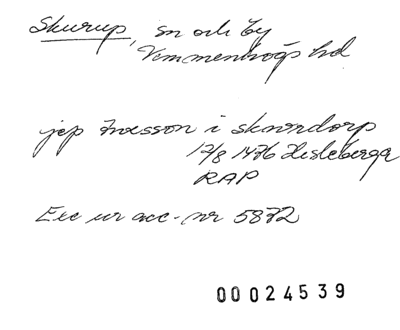 Skurup, sn och by
Vemmenhögs hd
jep Ivaesson i skurdorp
17/8 1476 Hisleberga
RAP
Exc ur acc-nr 5872
00024539